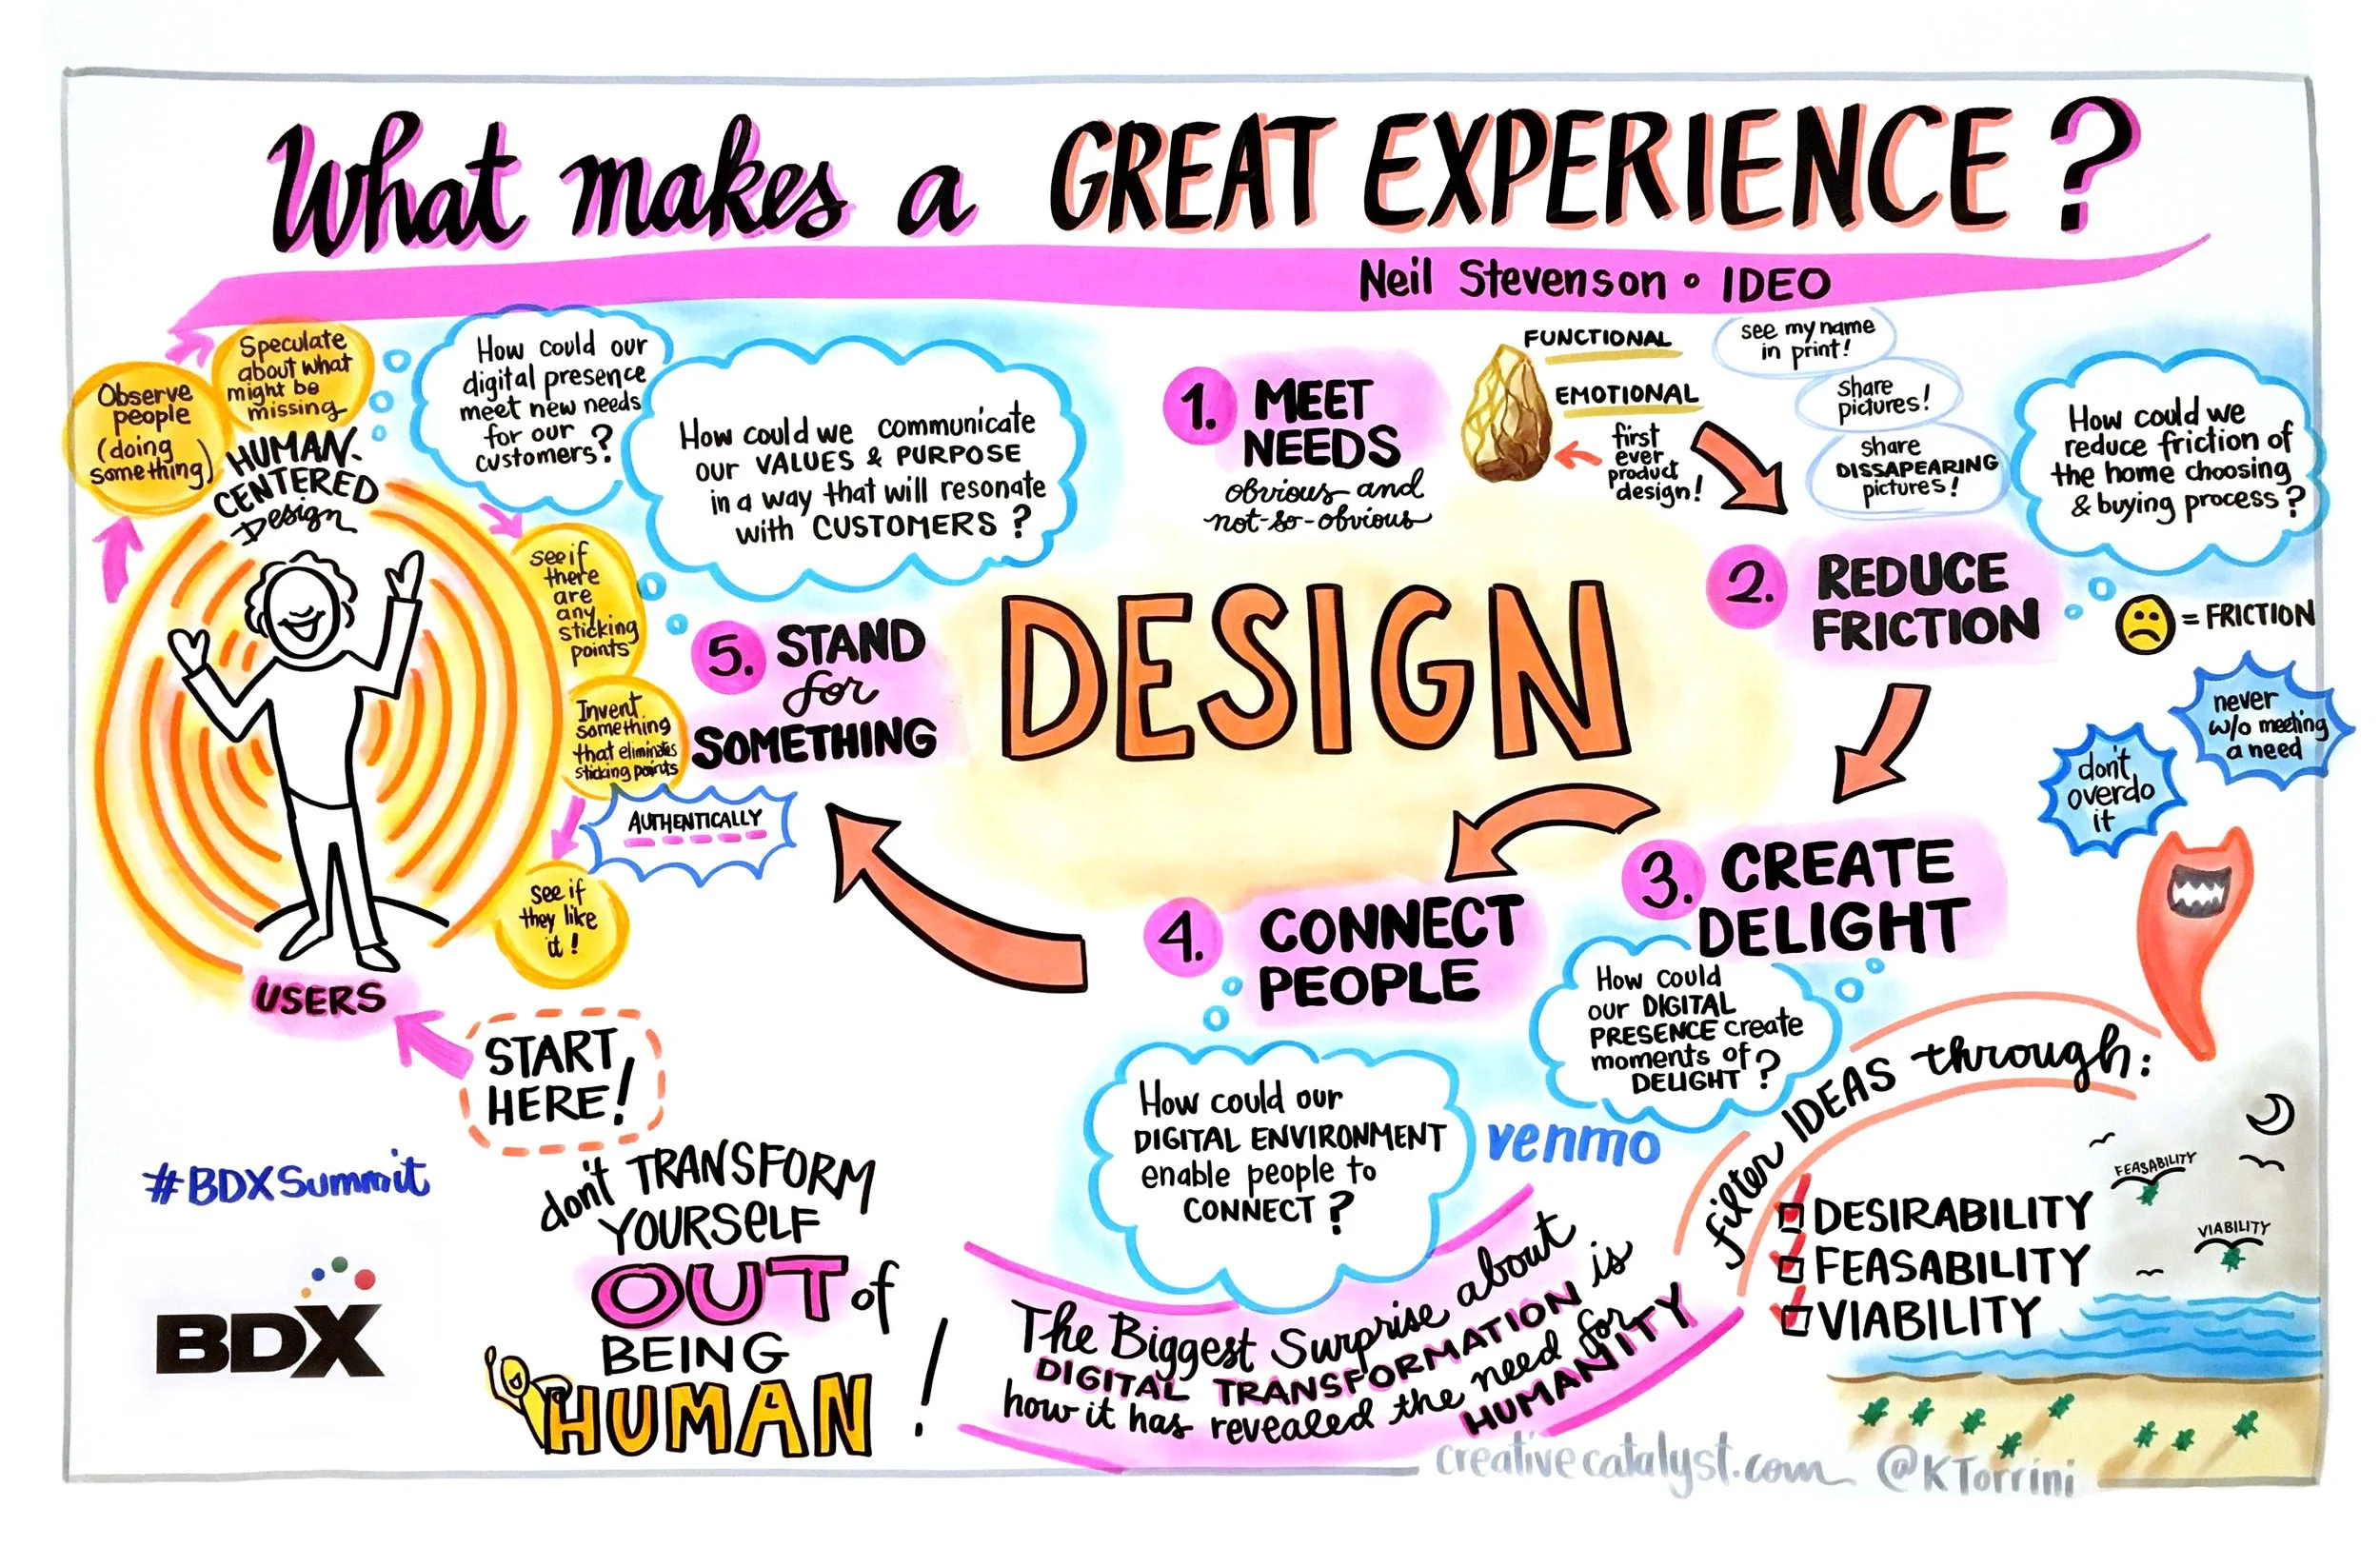 What makes a GREAT EXPERIENCE?
Neil Stevenson • IDEO
Observe
people
(doing
something)
Speculate
about what
might be
missing
HUMAN-
CENTERED
Design
How could our
digital presence
meet new needs
for our
customers?
see if
there
are
any
sticking
points
Invent
something
that eliminates
sticking points
see if
they like
it!
USERS
START
HERE!
How could we communicate
our VALUES & PURPOSE
in a way that will resonate
with CUSTOMERS?
DESIGN
1. MEET
NEEDS
obvious and
not-so-obvious
FUNCTIONAL
EMOTIONAL
first
ever
product
design!
see my name
in print!
share
pictures!
share
DISSAPEARING
pictures!
How could we
reduce friction of
the home choosing
& buying process?
2. REDUCE
FRICTION
= FRICTION
never
w/o meeting
a need
don't
overdo
it
3. CREATE
DELIGHT
How could
our DIGITAL
PRESENCE create
moments of
DELIGHT?
4. CONNECT
PEOPLE
How could our
DIGITAL ENVIRONMENT
enable people to
CONNECT?
venmo
5. STAND
for
SOMETHING
AUTHENTICALLY
filter IDEAS through:
DESIRABILITY
FEASABILITY
VIABILITY
FEASABILITY
VIABILITY
#BDXSummit
BDX
don't TRANSFORM
YOURSELF
OUT of
BEING
HUMAN!
The Biggest Surprise about
DIGITAL TRANSFORMATION is
how it has revealed the need for
HUMANITY
creativecatalyst.com @KTorrini